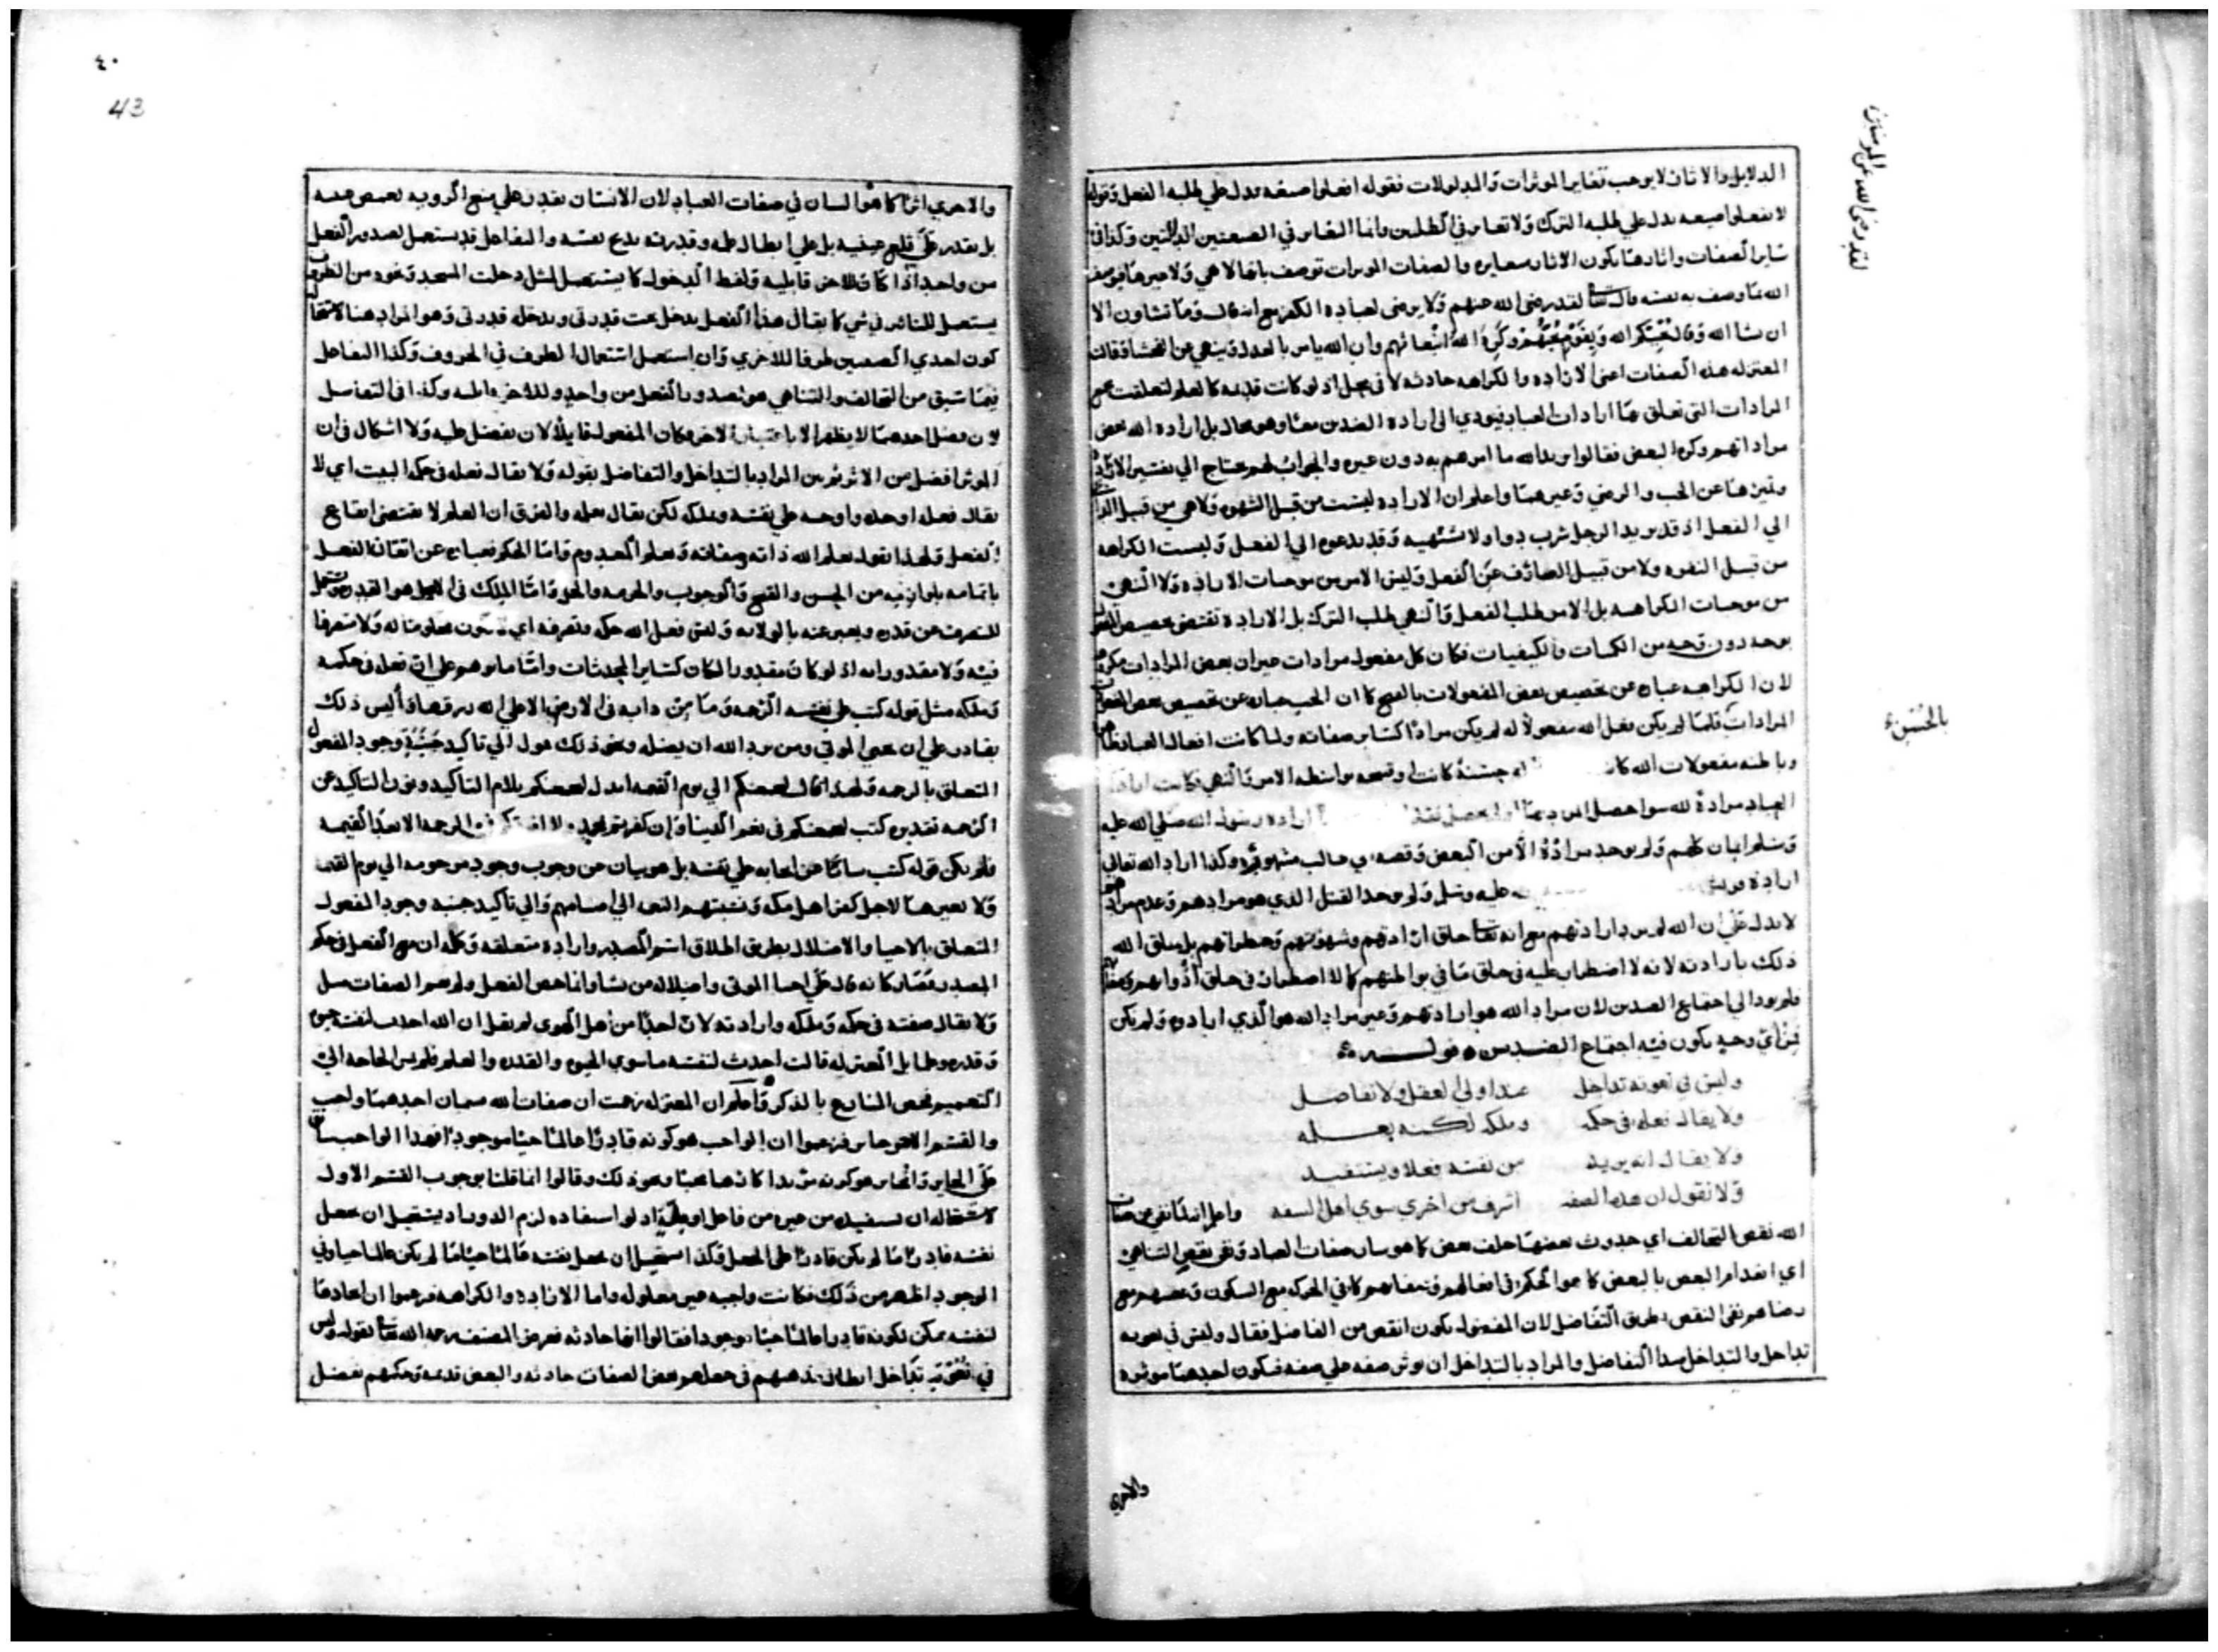 الدلايل والاثار لا يوجب تغاير الموثرات والمدلولات فقوله افعلوا صيغه يدل علي طلبه الفعل وقوله
لا تفعلوا صيغه يدل علي طلبه الترك ولا تغاير في الطلبين وانما التغاير في الصيغتين الدالتين وكذا في
ساير الصفات واثارها يكون الاثار متغايره والصفات الموثرات توصف بانها لا هي ولا غيرها فيوصف
الله بما وصف به نفسه قال تعالى لقد رضي الله عنهم ولا يرضى لعباده الكفر مع انه قال وما تشاون الا
ان يشا الله وقال يحببكم الله وبقوم يحبهم وكره الله انبعاثهم وان الله يامر بالعدل وينهي عن الفحشا وقالت
المعتزله هذه الصفات اعنى الاراده والكراهه حادثه لا في محل اذ لو كانت قديمه كالعلم لتعلقت بجميع
المرادات التى تعلق بها ارادات العباد فيودي الى اراده الضدين معا وهو محال بل اراده الله بعض
مراداتهم وكره البعض فقالوا يريد الله ما امرهم به دون غيره والجواب لهم يحتاج الي تفسير الاراده
وتميزها عن الحب والرضي وغيرهما واعلم ان الاراده ليست من قبل الشهوه ولا هي من قبيل الداعي
الي الفعل اذ قد يريد الرجل شرب دوا ولا يشتهيه وقد يدعوه الي الفعل وليست الكراهه
من قبيل النفره ولا من قبيل الصارف عن الفعل وليس الامر من موجبات الاراده ولا النهي
من موجبات الكراهه بل الامر طلب الفعل والنهي طلب الترك بل الاراده تقتضي تخصيص المفعول
بوجه دون وجه من الكميات والكيفيات فكان كل مفعول مرادات غير ان بعض المرادات مكروه
لان الكراهيه عباره عن تخصيص بعض المفعولات بالقبح كما ان الحب عباره عن تخصيص بعض المفعولات
المرادات فلما لم يكن فعل الله مفعولا له لم يكن مرادا كساير صفاته ولما كانت افعال العباد ظاهره
وباطنه مفعولات الله كانت حسنة كانت او قبيحه بواسطه الامر والنهي فكانت اراده
العباد مرادة لله سوا حصل المراد بها او لم يحصل فقد اراده رسول الله صلي الله عليه
وسلم ايمان كلهم ولم يوجد مراده الا من البعض وقصه ابي طالب مشهوره وكذا اراد الله تعالى
اراده قريش عليه وسلم ولم يوجد القتل الذي هو مرادهم وعدم مرادهم
لا يدل علي ان الله لم يرد ارادتهم مع انه تعالى خلق ارادتهم وشهوتهم وخطراتهم بل يخلق الله
ذلك بارادته لانه لا اضطرار عليه في خلق ما في بواطنهم كما لا اضطرار في خلق ذواتهم
فلم يود الي اجتماع الضدين لان مراد الله هو ارادتهم وغير مراد الله هو الذي ارادوه ولم يكن
فمن اي وجه يكون فيه اجتماع الضدين قوله
وليس في نعوته تداخل عند اولي العقل ولا تفاضل
ولا يقال فعله في حكمه وملكه لكنه بعلمه
ولا يقال انه يريد من نفسه فعلا ويستفيد
ولا نقول ان هذه الصفه اشرف من اخري سوي اهل السفه واعلم انه لما نفى عن صفات
الله نقص التخالف اي حدوث بعضها خلف بعض كما هو سان صفات العباد ونفى نقص التناهي
اي انعدام البعض بالبعض كما هو الحكم في افعالهم وصفاتهم كما في الحركه مع السكون وغضبهم مع
رضاهم نفى النقص بطريق التفاضل لان المفضول يكون انقص من الفاضل فقال وليس في نعوته
تداخل والتداخل مبدا التفاضل والمراد بالتداخل ان يوثر صفه علي صفه فيكون احدهما موثره
لقد رضي الله عن المومنين
بالحسن
والاخري
٤٠
43
والاخري اثرا كما هو السان في صفات العباد لان الانسان يقدر علي منع الرويه بغمض عينه
بل يقدر علي قلع عينيه بل علي ابطال علمه وقدرته بدع نفسه والتفاعل قد يستعمل لصدور الفعل
من واحد اذا كان للاخر قابليه ولفظ الدخول كما يستعمل لمثل دخلت المسجد ونحوه من الظروف
يستعمل للتاثير في شي كما يقال هذا الفعل يدخل تحت قدرتي ويدخله قدرتي وهو المراد هنا لاستحاله
كون احدي الصفتين ظرفا للاخري وان استعمل استعمال الظرف في الحروف وكذا التفاعل
فيما سبق من التخالف والتناهي هو لصدور الفعل من واحد وللاخر قابليه وكذا في التفاضل
لان فضل احدهما لا يظهر الا باعتبار الاخر فكان المفعول قابلا لان يفضل عليه ولا اشكال في ان
الموثر افضل من الاثر ثم بين المراد بالتداخل والتفاضل بقوله ولا يقال فعله في حكمه البيت اي لا
يقال فعله اوجده واوجبه علي نفسه وملكه لكن يقال بعلمه والفرق ان العلم لا يقتضى ايقاع
الفعل ولهذا نقول يعلم الله ذاته وصفاته ويعلم المعدوم واما الحكم فعباره عن اتقان الفعل
باتمامه بلوازمه من الحسن والقبح والوجوب والحرمه والحل واما الملك في الاصل هو القدره ويستعمل
للتصرف عن قدره ويعبر عنه بالولايه وليس فعل الله حكمه وتصرفه اي معلوما له ولا متصرفا
فيه ولا مقدورا له اذ لو كان مقدورا لكان كساير المحدثات واما ما يوهم على ان فعله في حكمه
وملكه مثل قوله كتب على نفسه الرحمه وما من دابه في الارض الا على الله رزقها واليس ذلك
بقادر علي ان يحيي الموتي ومن يرد الله ان يضله ونحو ذلك يوول الي تاكيد جنبة وجود المفعول
المتعلق بالرحمه ولهذا قال ليجمعنكم الي يوم القيمه ابدل ليجمعنكم بلام التاكيد ونون التاكيد عن
الرحمه تقديره كتب ليجمعنكم في نعم الدنيا وان كفرتم الرحمه الا بعد القيمه
فلم يكن قوله كتب ساكتا عن ايجابه علي نفسه بل هو بيان عن وجوب وجود مرحومه الي يوم القيمه
ولا تغييرها لاجل كفر اهل مكه ونسبتهم النعم الي اصنامهم والي تاكيد جنبه وجود المفعول
المتعلق بالاحيا والاضلال بطريق اطلاق اسم المصدر واراده متعلقه وكلمه ان مع الفعل في حكم
المصدر فصار كانه قال علي احيا الموتى واضلاله من يشا وانما خص الفعل ولم يعم الصفات مثل
ولا يقال صفته في حكمه وملكه وارادته لان احدا من اهل الهوى لم يقل ان الله احدث لنفسه حيوه
وقدره وعلما بل المعتزله قالت احدث لنفسه ما سوي الحيوه والقدره والعلم فلم يمس الحاجه الي
التعميم فخص المتنازع بالذكر واعلم ان المعتزله زعمت ان صفات الله قسمان احدهما واجب
والقسم الاخر جايز فزعموا ان الواجب هو كونه قادرا عالما حيا موجودا فهذا الواجب سابق
علي الجايز والجايز هو كونه مريدا كارها محبا ونحو ذلك وقالوا انما قلنا بوجوب القسم الاول
لاستحاله ان يستفيده من غيره من فاعل او علة اذ لو استفاده لزم الدور اذ يستحيل ان يجعل
نفسه قادرا ما لم يكن قادرا على الجعل وكذا يستحيل ان يجعل نفسه عالما حيا ما لم يكن عالما حيا وفي
الوجود اظهر من ذلك فكانت واجبه غير معلوله واما الاراده والكراهه فزعموا ان ايجادها
لنفسه ممكن لكونه قادرا عالما حيا موجودا فقالوا انها حادثه فعرض المصنف رحمه الله تعالى بقوله وليس
في نعوته تداخل ابطال مذهبهم في جعلهم بعض الصفات حادثه والبعض قديمه وحكمهم بفضل